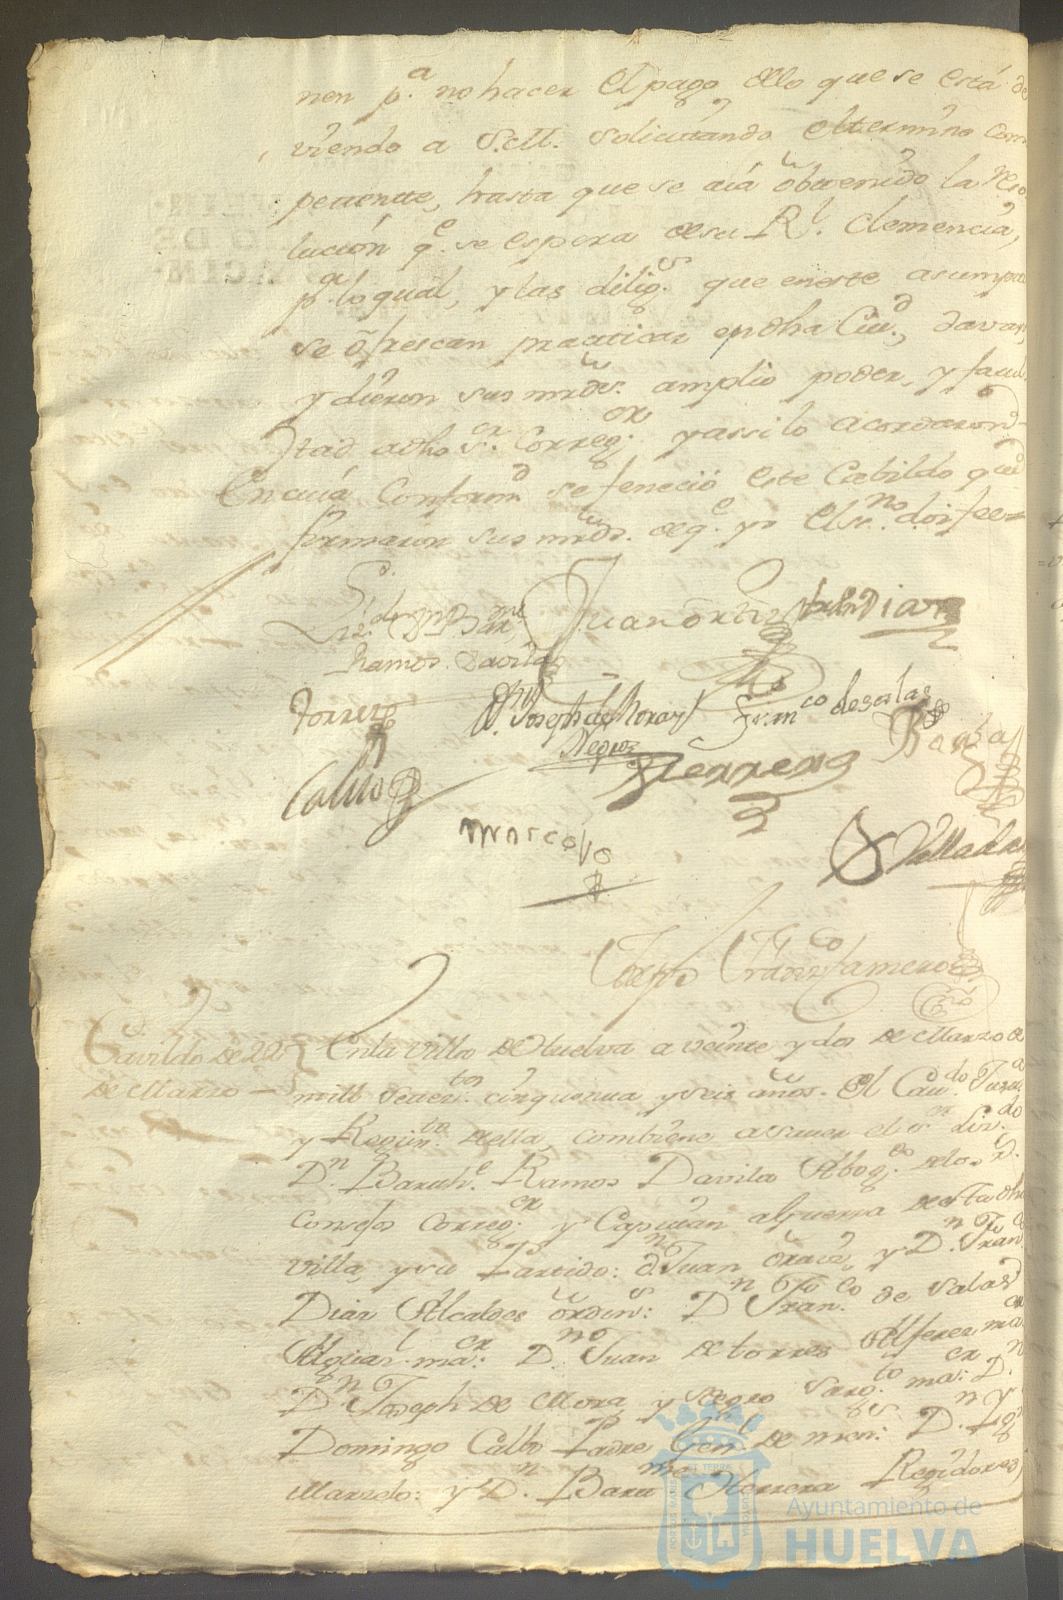 nen p.ª no hacer el pago dello que se está de
viendo a S.M. solicitando el termino com
petente, hasta que se aia obtenido la reso
lución q.e se espera de su R.l Clemencia,
p.ª lo qual, y las dilig.s que eneste asumpto
se ofrescan practicar en dha Ciu.d, davan,
y dieron sus mrds. amplio poder, y facul
tad a dho S.or Correg.or y assi lo acordaron
En cuia Conform.d se feneció este Cabildo que
firmaron sus mrds. de q.e yo el ss.no doi fee=
Liz.do Dn Bar.me
Ramos Davila
Juan Ortiz
Diaz
Torres
Dn Joseph de Mora y
Negro
Fran.co de salas
Barba
Calvo
Herrera
Marcelo
Vallada
Franco Jamero
Cavildo de 22
de Marzo
En la Villa de Huelva a veinte y dos de Marzo de
mill setec.tos cinquenta y seis años. El Cau.do Justª
y Regim.to della, combiene a saver el s.or Liz.do
D.n Barth.e Ramos Davila Abog.do de los R.s
Consejos Correg.or y Capitan a guerra de esta dha
Villa, y su Partido: d.n Juan Ortiz, y D.n Fran.co
Diaz Alcaldes ordin.s: D.n Fran.co de Salas
Alguaz.l ma.or: D.n Juan de torres Alferez ma.or
D.n Joseph de Mora y Negro Sarg.to ma.or: D.n
Domingo Calbo Padre Gen.l de men.s: D.n
Marzelo: y D.n Bar.me Herrera Regidores
Ayuntamiento de
HUELVA